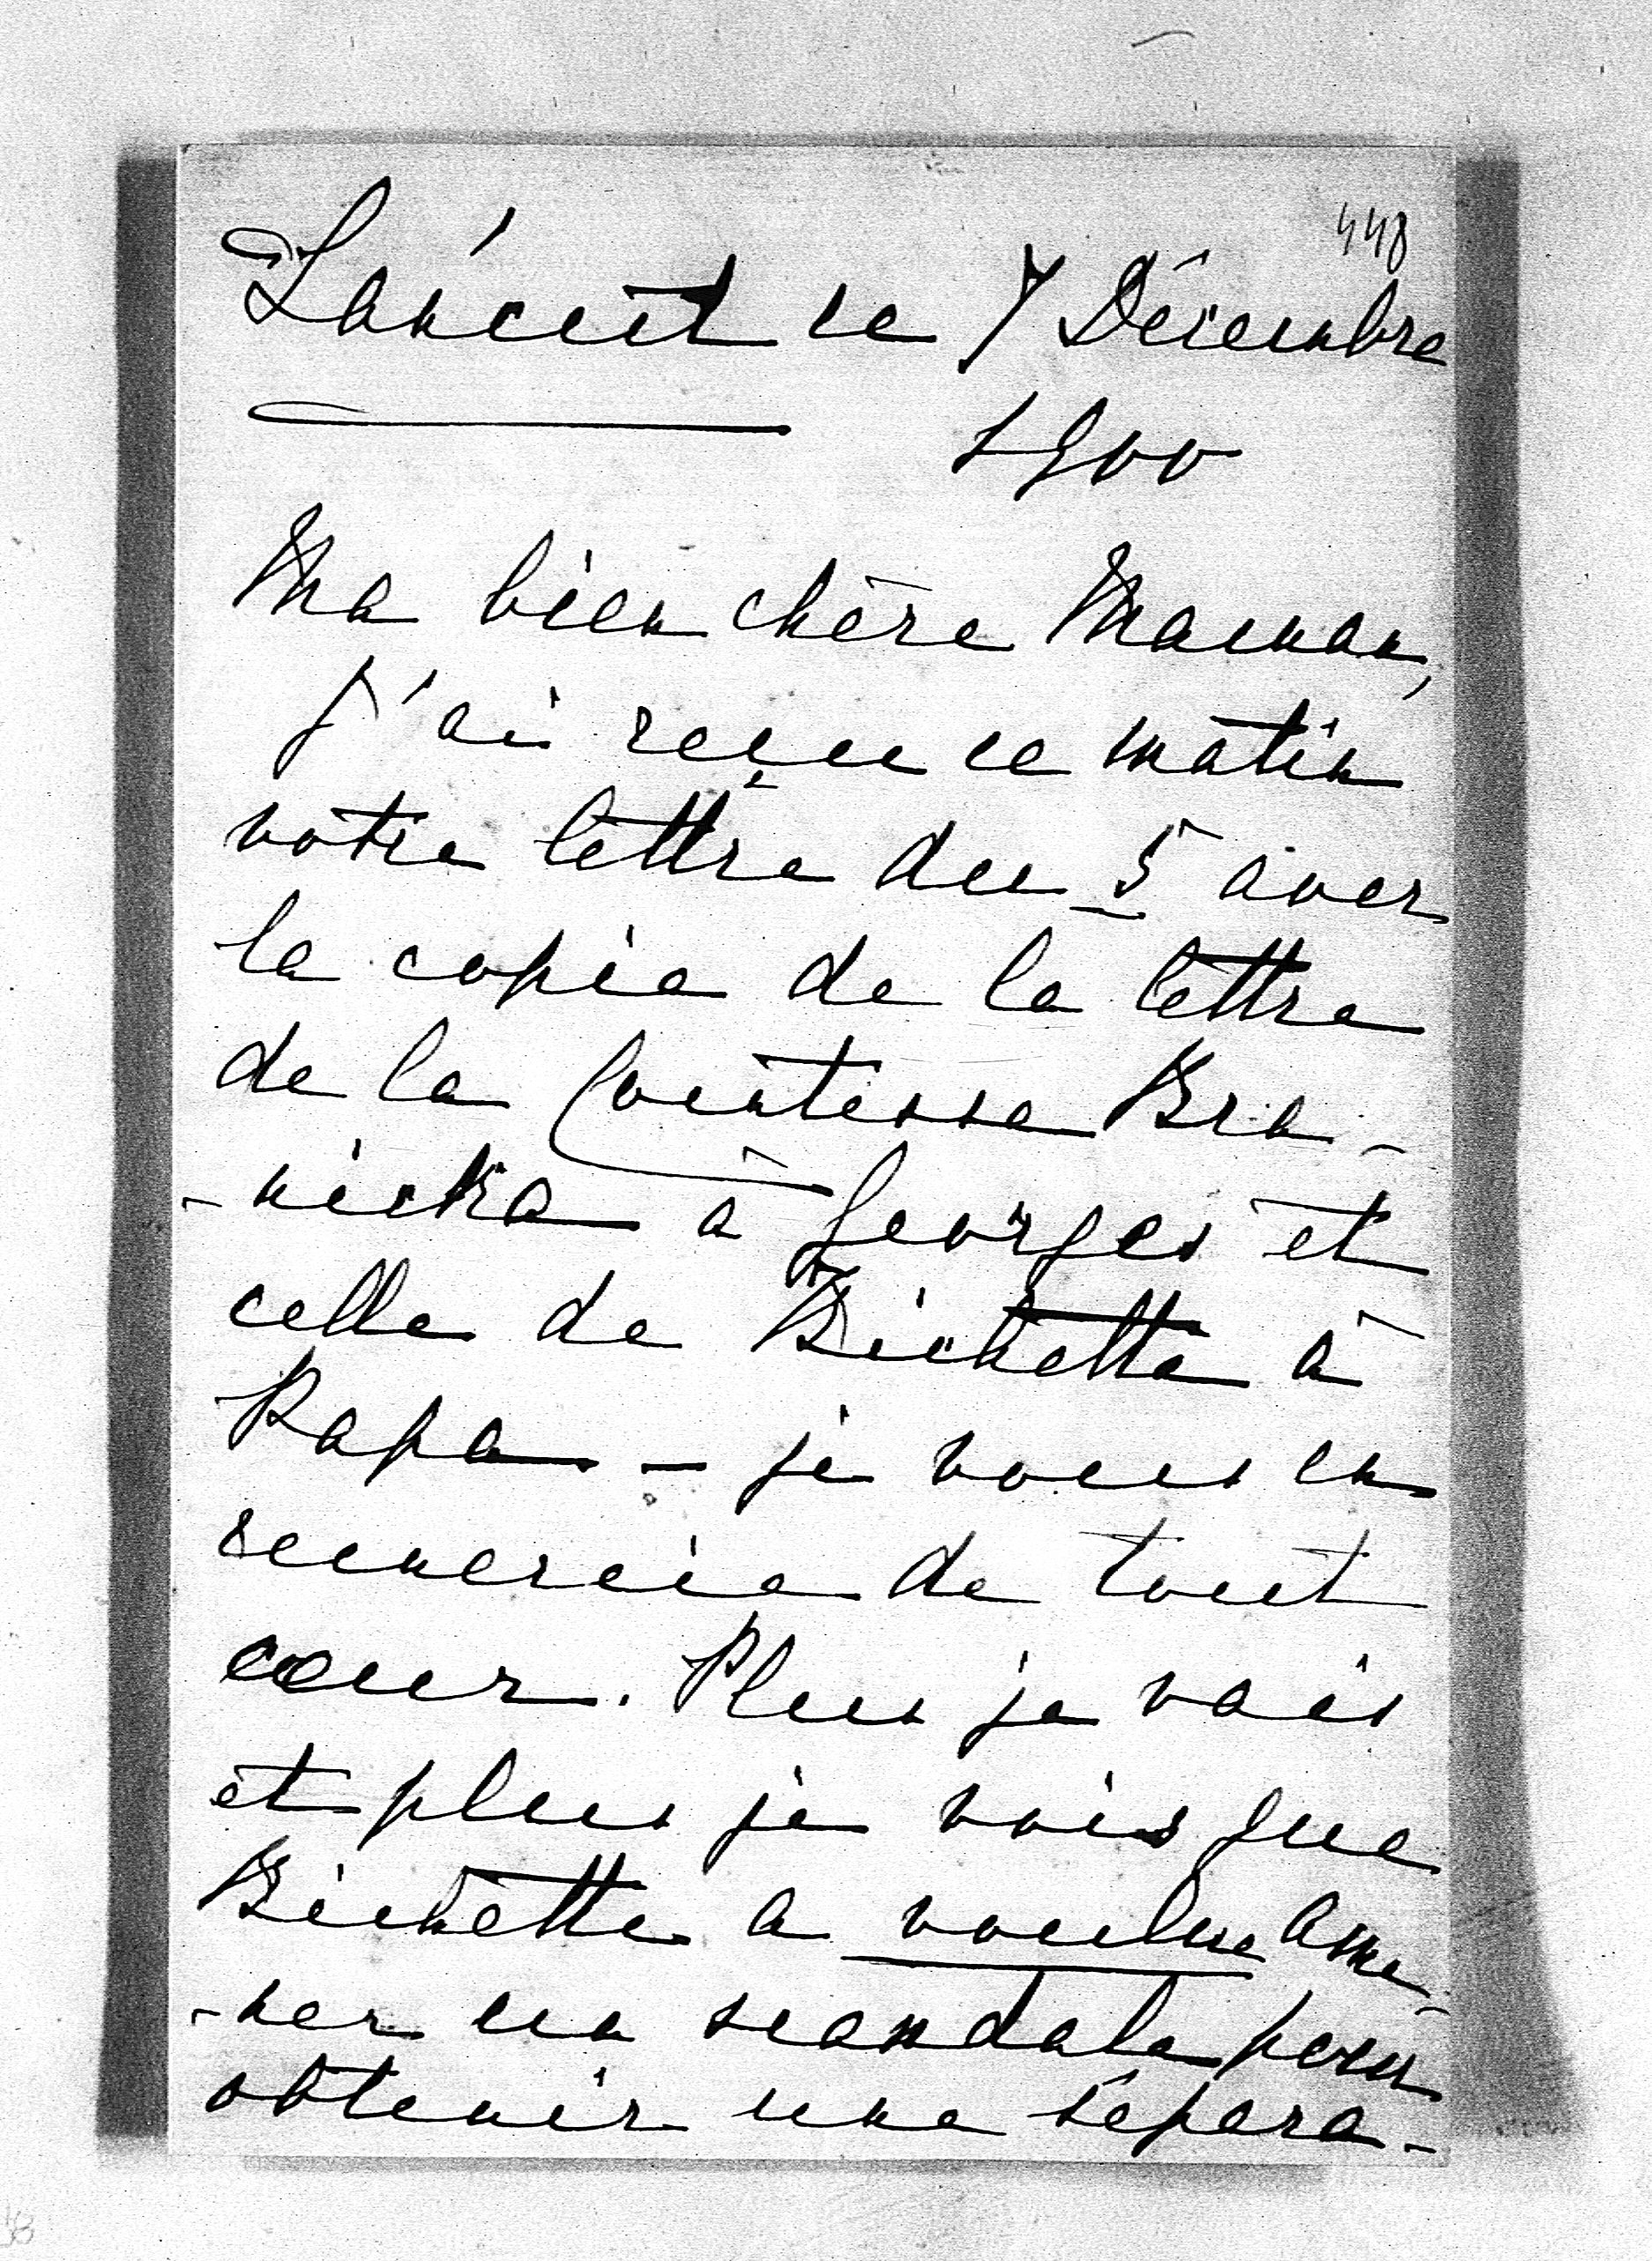 448
Łańcut ce 7 Décembre
1900
Ma bien chère Maman,
J'ai reçu ce matin
votre lettre du 5 avec
la copie de la lettre
de la Comtesse Bra-
-nicka à Georges et
celle de Bichette à
Papa - je vous en
remercie de tout
cœur. Plus je vais
et plus je vois que
Bichette a voulu ame-
-ner un scandale pour
obtenir une sépara-